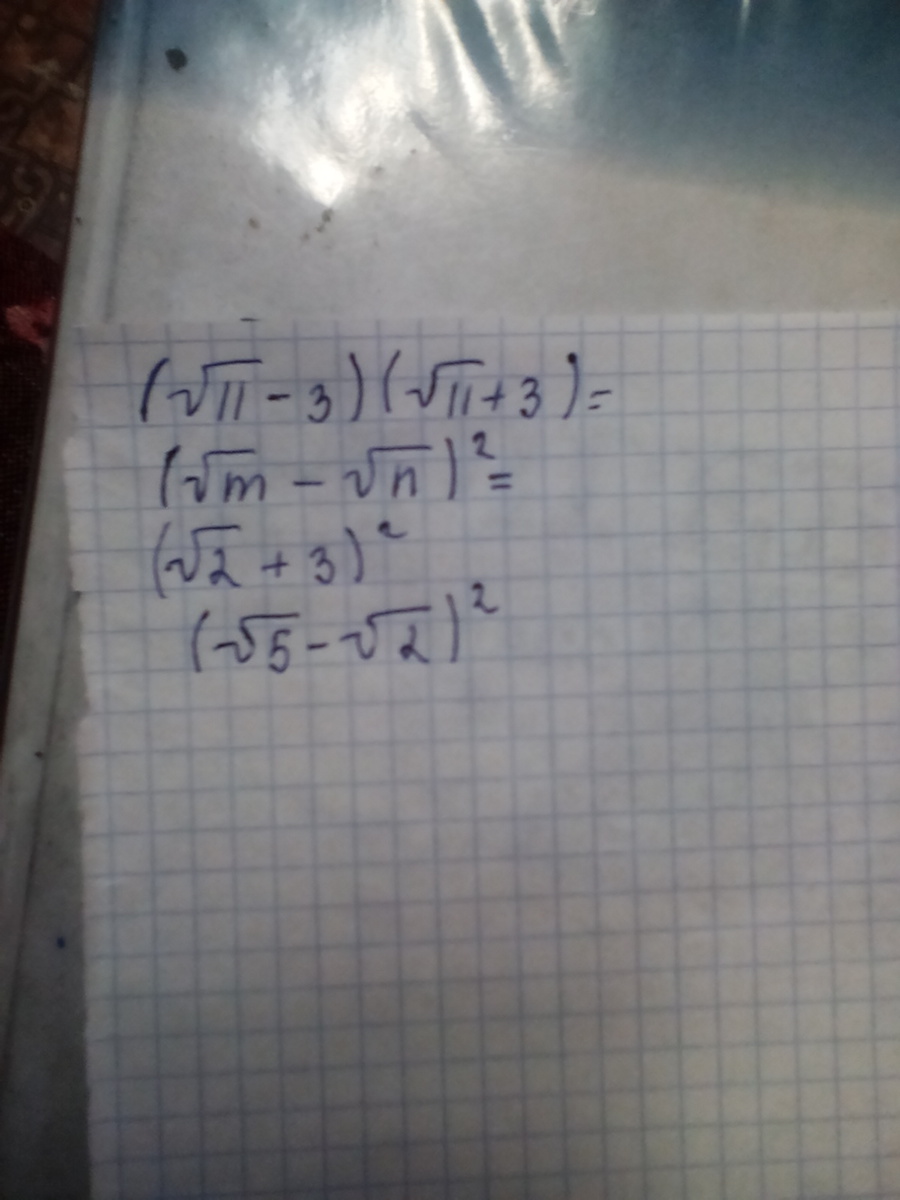 (√11 - 3)(√11 + 3) =
(√m - √n)² =
(√2 + 3)²
(√5 - √2)²